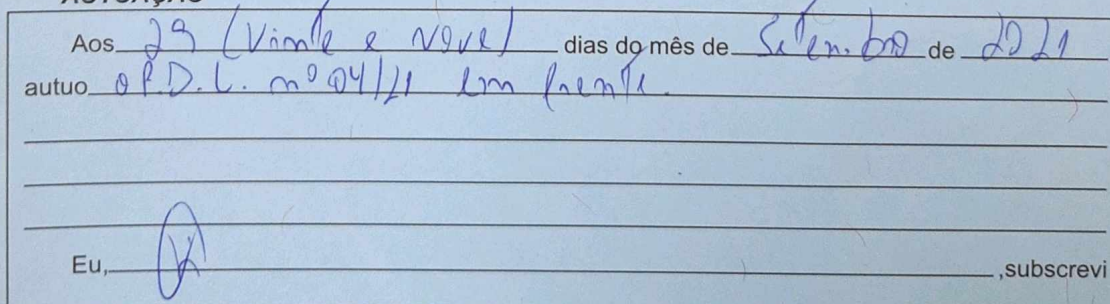 AUTUAÇÃO
Aos 29 (Vinte e Nove) dias do mês de Setembro de 2021
autuo o P.D.L. nº 04/21 em frente.
Eu, ,subscrevi